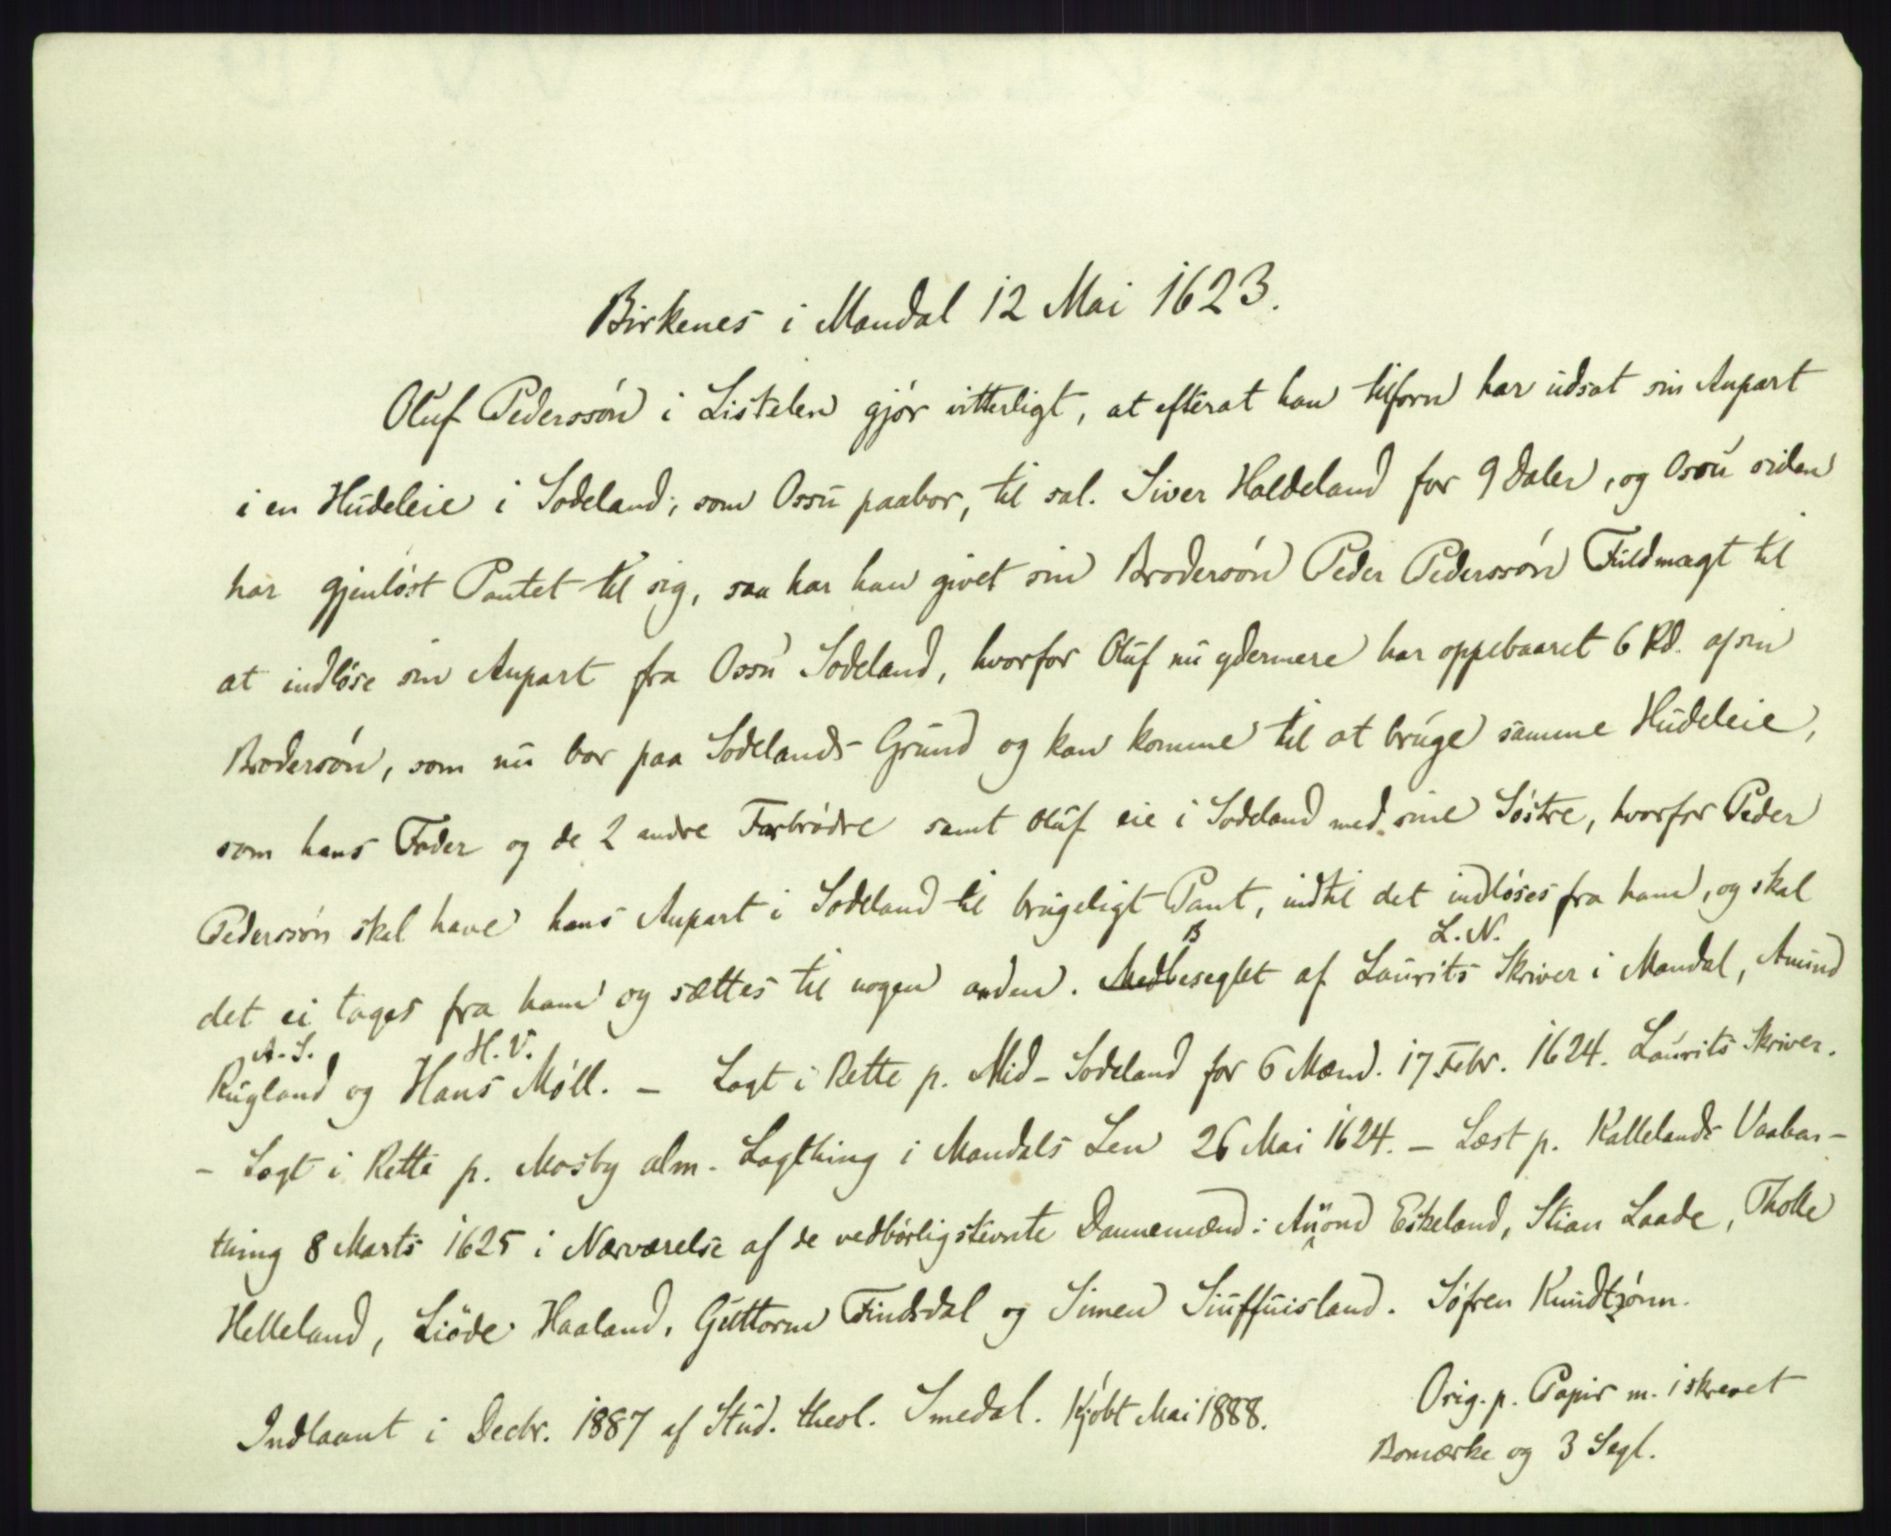 Birkenes i Mandal 12 Mai 1623.
Oluf Pederssøn i Listelen gjør vitterligt, at efterat han tilforn har udsat sin Anpart
i en Hudeleie i Sodeland, som Ossu paabor, til sal. Siver Haldeland for 9 Daler, og Ossu siden
har gjenløst Pantet til sig, saa har han givet sin Brodersøn Peder Pederssøn Fuldmagt til
at indløse sin Anpart fra Ossu Sodeland, hvorfor Oluf nu ydermere har oppebaaret 6 Rd. af sin
Brodersøn, som nu bor paa Sodelands Grund og kan komme til at bruge samme Hudeleie,
som hans Fader og de 2 andre Farbrødre samt Oluf eie i Sodeland med sine Søstre, hvorfor Peder
Pederssøn skal have hans Anpart i Sodeland til brugeligt Pant, indtil det indløses fra ham, og skal
det ei tages fra ham og sættes til nogen anden. Medbeseglet af Laurits Skriver i Mandal, Amund
B L. N.
Rugland og Hans Møll. – Lagt i Rette p. Mid-Sodeland for 6 Mænd. 17 Febr. 1624. Laurits Skriver.
A. S. H. V.
– Lagt i Rette p. Mosby alm. Lagthing i Mandals Len 26 Mai 1624. – Læst p. Kallelands Vaabenthing 8 Marts 1625 i Nærværelse af de vedbørlig stevnte Dannemænd: Auond Eskeland, Stian Laade, Tholle
Helleland, Liøde Haaland, Guttorm Findsdal og Simen Siuffuisland. Søfren Knudtzønn.
Orig. p. Papir m. iskrevet
Bomærke og 3 Segl.
Indlaant i Decbr. 1887 af Stud. theol. Smedal. Kjøbt Mai 1888.